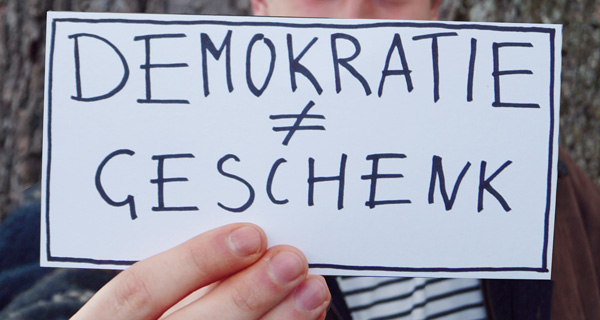 DEMOKRATIE
≠
GESCHENK